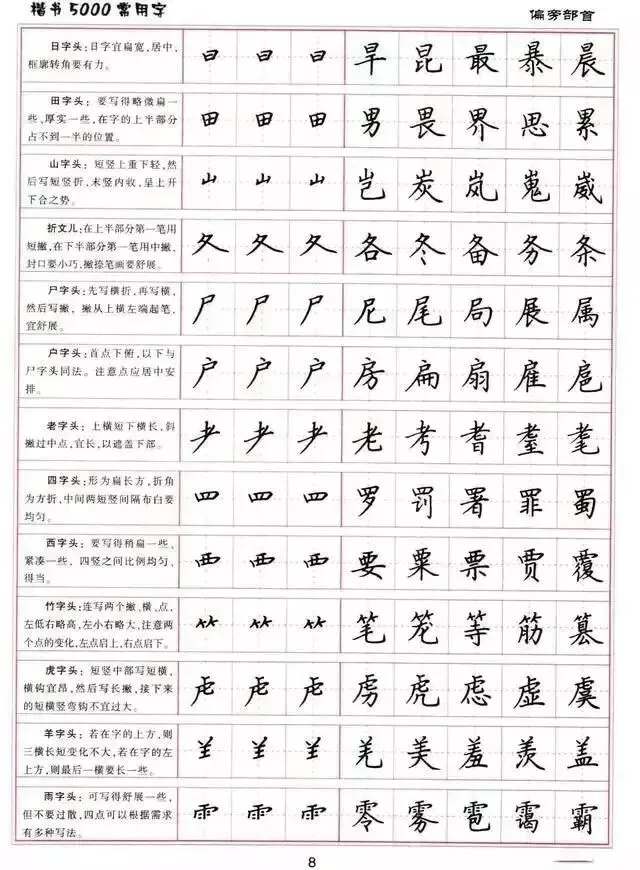 楷书5000常用字
偏旁部首
日字头：日字宜扁宽,居中,
框廓转角要有力。
日 日 日 旱 昆 最 暴 晨
田字头：要写得略微扁一
些,厚实一些,在字的上半部分
占不到一半的位置。
田 田 田 男 畏 界 思 累
山字头：短竖上重下轻,然
后写短竖折,末竖内收,呈上开
下合之势。
山 山 山 岂 炭 岚 嵬 崴
折文儿：在上半部分第一笔用
短撇,在下半部分第一笔用中撇,
封口要小巧,撇捺笔画要舒展。
夂 夂 夂 各 冬 备 务 条
尸字头：先写横折,再写横,
然后写撇，撇从上横左端起笔,
宜舒展。
尸 尸 尸 尼 尾 局 展 属
户字头：首点下俯,以下与
尸字头同法。注意点应居中安
排。
户 户 户 房 扁 扇 雇 扈
老字头：上横短下横长,斜
撇过中点,宜长,以遮盖下部。
耂 耂 耂 老 考 耆 耋 耄
四字头：形为扁长方,折角
为方折,中间两短竖间隔布白要
均匀。
罒 罒 罒 罗 罚 署 罪 蜀
西字头：要写得稍扁一些、
紧凑一些，四竖之间比例均匀、
得当。
覀 覀 覀 要 粟 票 贾 覆
竹字头：连写两个撇、横、点,
左低右略高,左小右略大,注意两
个点的变化,左点启上,右点启下。
⺮ ⺮ ⺮ 笔 笼 等 筋 篡
虎字头：短竖中部写短横,
横钩宜昂，然后写长撇,接下来
的短横竖弯钩不宜过大。
虍 虍 虍 虏 虎 虑 虚 虞
羊字头：若在字的上方,则
三横长短变化不大,若在字的左
上方,则最后一横要长一些。
⺷ ⺷ ⺷ 羌 美 羞 羡 盖
雨字头：可写得舒展一些,
但不要过散,四点可以根据需求
有多种写法。
⻗ ⻗ ⻗ 零 雾 雹 霭 霸
8